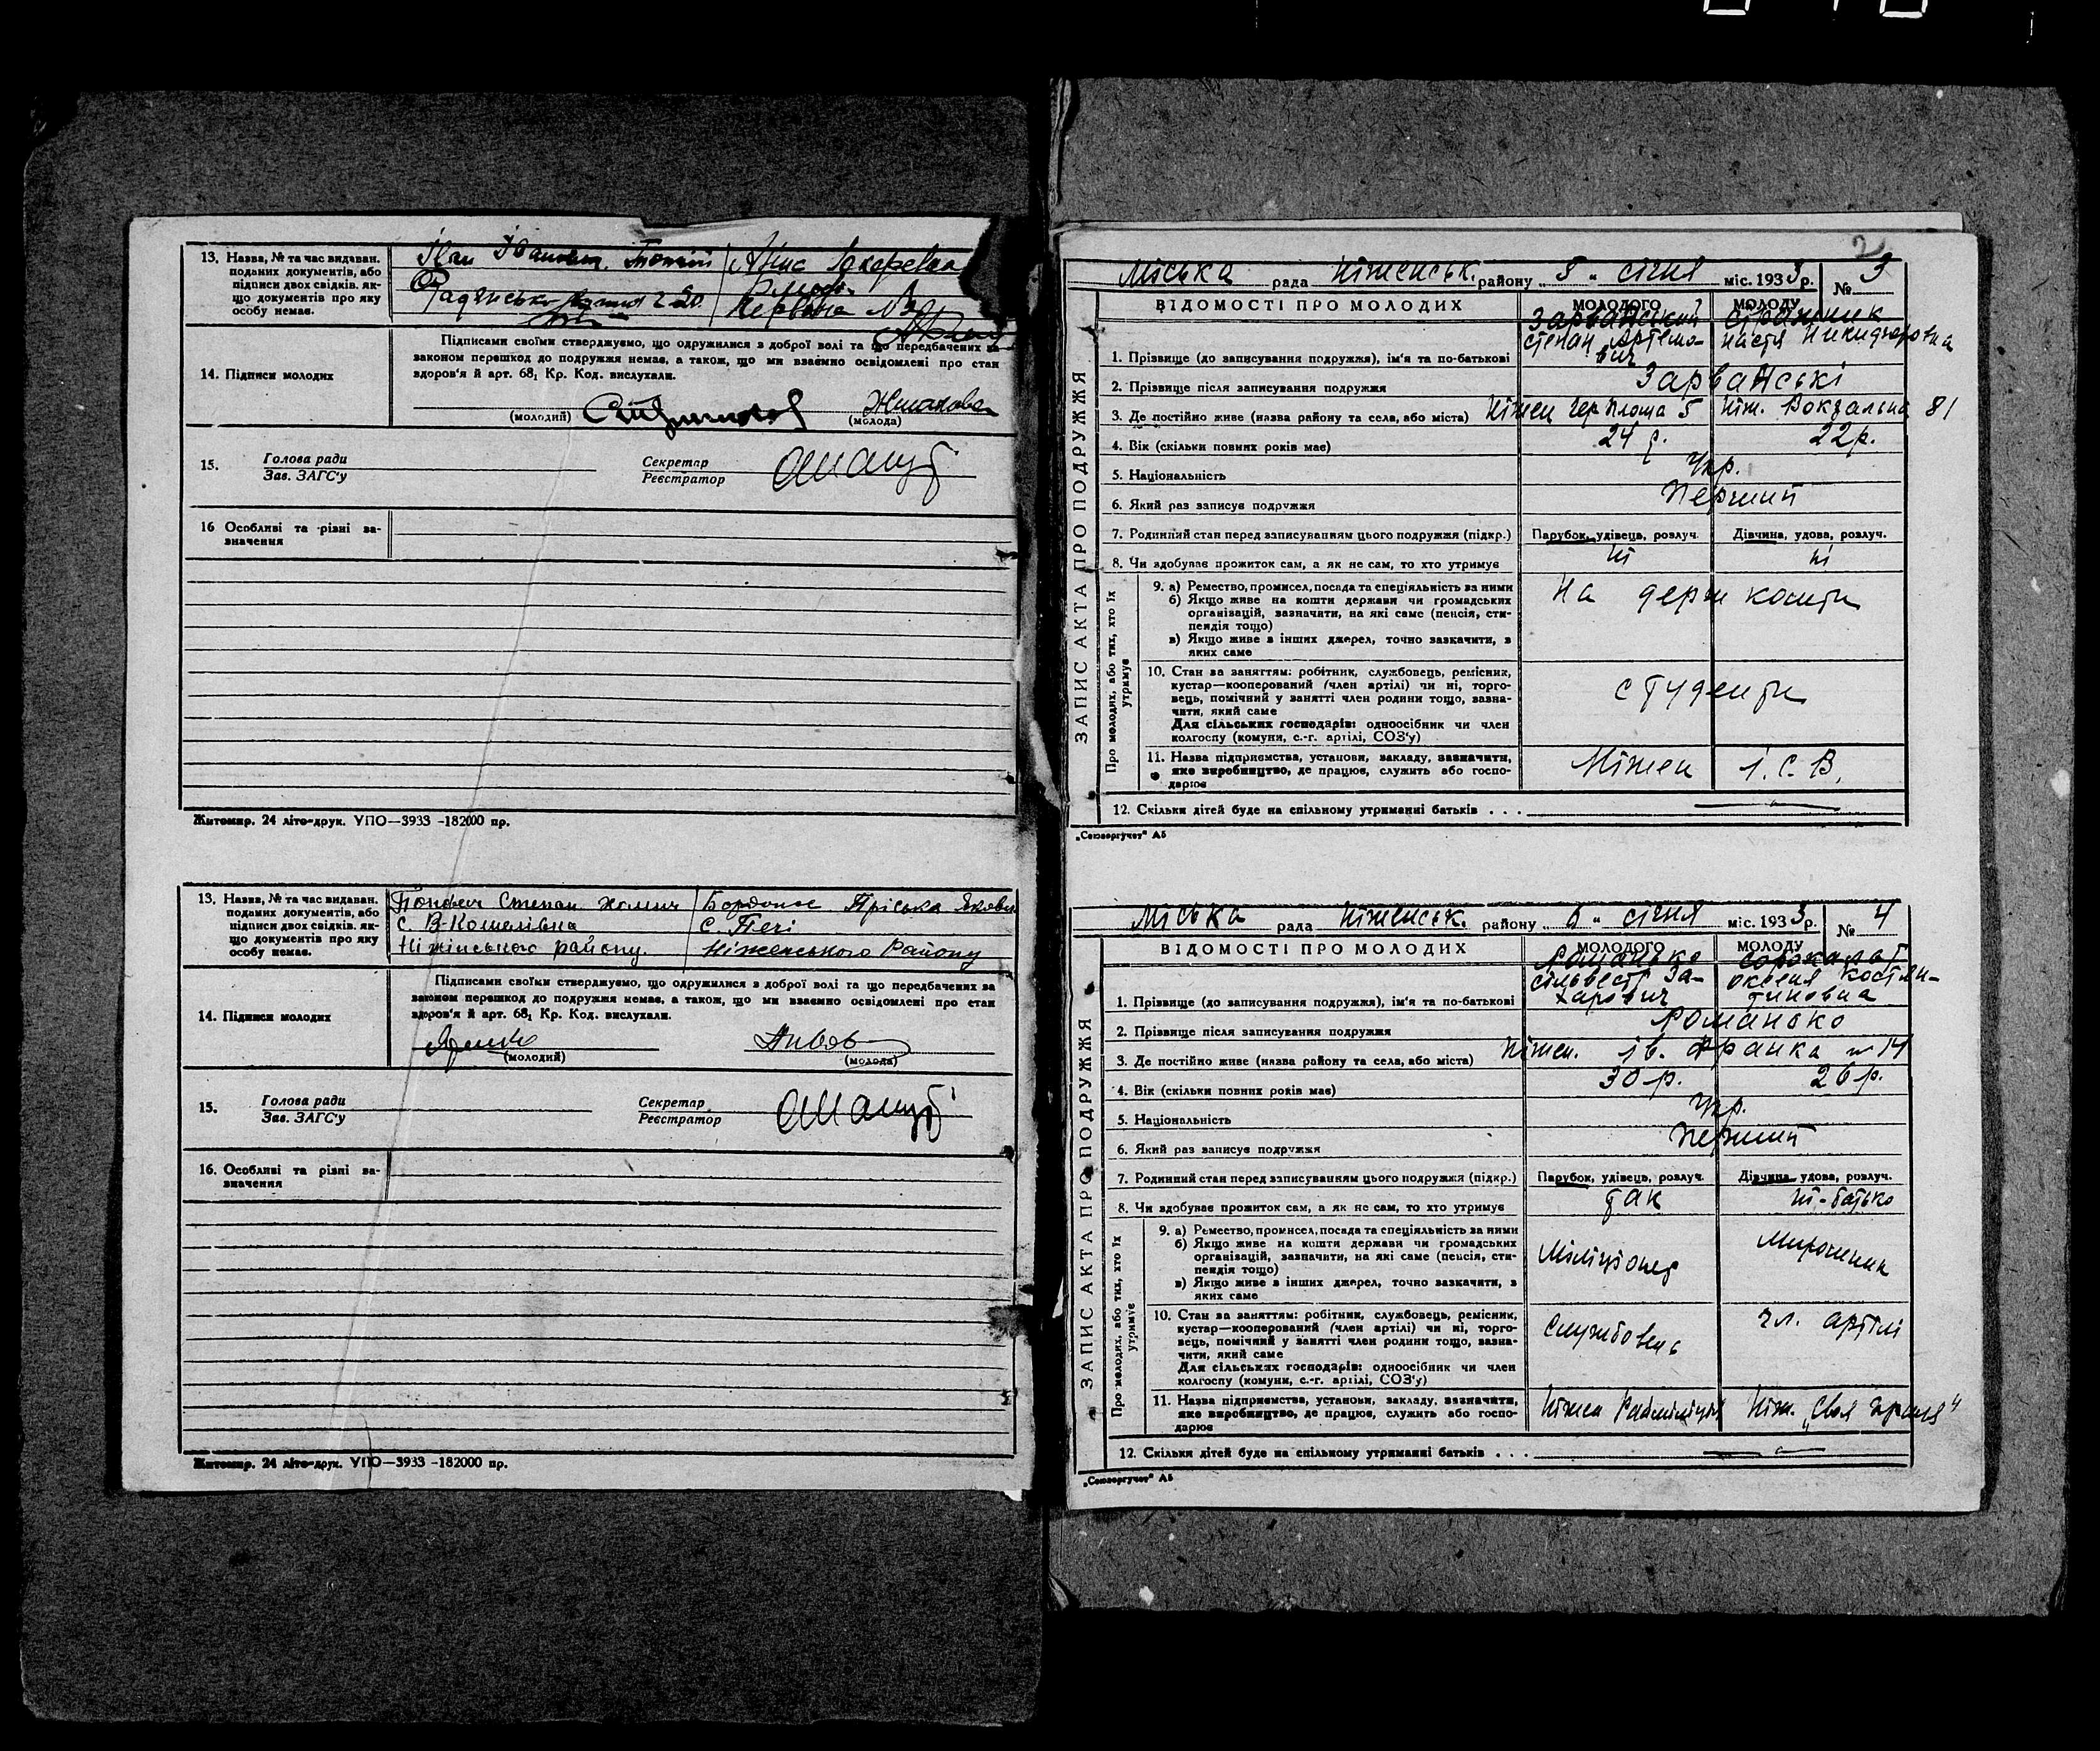 13. Назва, № та час видаван.
поданих документів, або
підписи двох свідків. як-
що документів про яку
особу немає.
Іван Іванович
Підписами своїми стверджуємо, що одружилися з доброї волі та що передбачених за
законом перешкод до подружжя немає, а також, що ми взаємно освідомлені про стан
здоров'я й арт. 68₁ Кр. Код. вислухали.
14. Підписи молодих
(молодий) (молода)
15. Голова ради
Зав. ЗАГС'у
Секретар
Реєстратор
16 Особливі та різні за-
значення
Житомир. 24 літо-друк. УПО—3933 -182000 пр.
13. Назва, № та час видаван.
поданих документів, або
підписи двох свідків. як-
що документів про яку
особу немає.
Степан
с. В-Кошелівка
Ніжинського району.
Пріська
с. Печі
Ніженського Району
Підписами своїми стверджуємо, що одружилися з доброї волі та що передбачених за
законом перешкод до подружжя немає, а також, що ми взаємно освідомлені про стан
здоров'я й арт. 68₁ Кр. Код. вислухали.
14. Підписи молодих
(молодий) (молода)
15. Голова ради
Зав. ЗАГС'у
Секретар
Реєстратор
16. Особливі та різні за-
значення
Житомир. 24 літо-друк. УПО—3933 -182000 пр.
2
ЗАПИС АКТА ПРО ПОДРУЖЖЯ
Міська рада Ніженськ. району „ 5 " січня міс. 1933 р. № 3
ВІДОМОСТІ ПРО МОЛОДИХ МОЛОДОГО МОЛОДУ
Зарванський
Степан Артемо-
вич
Настя Никифоровна
1. Прізвище (до записування подружжя), ім'я та по-батькові
2. Прізвище після записування подружжя Зарванські
3. Де постійно живе (назва району та села, або міста) Ніжен Чер площа 5 Ніж. Вокзальна 81
4. Вік (скільки повних років має) 24 р. 22 р.
5. Національність Укр.
6. Який раз записує подружжя Перший
7. Родинний стан перед записуванням цього подружжя (підкр.) Парубок, удівець, розлуч. Дівчина, удова, розлуч.
8. Чи здобуває прожиток сам, а як не сам, то хто утримує ні ні
Про молодих, або тих, хто їх
утримує
9. а) Ремество, промисел, посада та спеціяльність за ними
б) Якщо живе на кошти держави чи громадських
організацій, зазначити, на які саме (пенсія, сти-
пендія тощо)
в) Якщо живе з інших джерел, точно зазначити, з
яких саме
На держ кошти
10. Стан за заняттям: робітник, службовець, ремісник,
кустар—кооперований (член артілі) чи ні, торго-
вець, помічний у занятті член родини тощо, зазна-
чити, який саме
Для сільських господарів: одноосібник чи член
колгоспу (комуни, с.-г. артілі, СОЗ'у)
студенти
11. Назва підприємства, установи, закладу, зазначити,
яке виробництво, де працює, служить або госпо-
дарює
Ніжен І. С. В.
12. Скільки дітей буде на спільному утриманні батьків . . .
„Союзоргучет" А5
ЗАПИС АКТА ПРО ПОДРУЖЖЯ
Міська рада Ніженськ. району „ 6 " січня міс. 1933 р. № 4
ВІДОМОСТІ ПРО МОЛОДИХ МОЛОДОГО МОЛОДУ
Романько
Сільвестр За-
харович
Оксеня Костян-
тиновна
1. Прізвище (до записування подружжя), ім'я та по-батькові
2. Прізвище після записування подружжя Романько
3. Де постійно живе (назва району та села, або міста) Ніжен. Ів. Франка № 14
4. Вік (скільки повних років має) 30 р. 26 р.
5. Національність Укр.
6. Який раз записує подружжя Перший
7. Родинний стан перед записуванням цього подружжя (підкр.) Парубок, удівець, розлуч. Дівчина, удова, розлуч.
8. Чи здобуває прожиток сам, а як не сам, то хто утримує так ні-батько
Про молодих, або тих, хто їх
утримує
9. а) Ремество, промисел, посада та спеціяльність за ними
б) Якщо живе на кошти держави чи громадських
організацій, зазначити, на які саме (пенсія, сти-
пендія тощо)
в) Якщо живе з інших джерел, точно зазначити, з
яких саме
Міліціонер
10. Стан за заняттям: робітник, службовець, ремісник,
кустар—кооперований (член артілі) чи ні, торго-
вець, помічний у занятті член родини тощо, зазна-
чити, який саме
Для сільських господарів: одноосібник чи член
колгоспу (комуни, с.-г. артілі, СОЗ'у)
Службовець чл. артілі
11. Назва підприємства, установи, закладу, зазначити,
яке виробництво, де працює, служить або госпо-
дарює
Ніжен Раймиліція Ніж. „Своя праця"
12. Скільки дітей буде на спільному утриманні батьків . . .
„Союзоргучет" А5